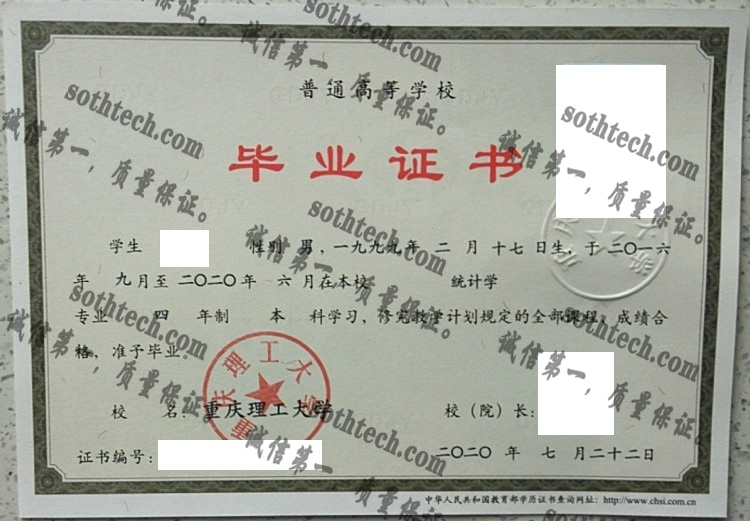 普通高等学校
毕业证书
学生 性别 男，一九九九年 二 月 十七 日生，于 二〇一六
年 九月至 二〇二〇年 六 月在本校 统计学
专业 四 年制 本 科学习，修完教学计划规定的全部课程，成绩合
格，准予毕业。
重庆理工大学
校 名：重庆理工大学 校（院）长：
证书编号： 二〇二〇 年 七 月二十二日
中华人民共和国教育部学历证书查询网址：http://www.chsi.com.cn
sothtech.com
诚信第一，质量保证。
sothtech.com
诚信第一，质量保证。
sothtech.com
诚信第一，质量保证。
sothtech.com
诚信第一，质量保证。
sothtech.com
诚信第一，质量保证。
sothtech.com
诚信第一，质量保证。
sothtech.com
诚信第一，质量保证。